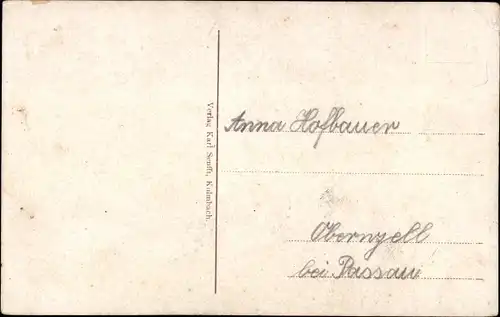 Verlag Karl Senfft, Kulmbach.
Anna Hofbauer
Obernzell
bei Passau